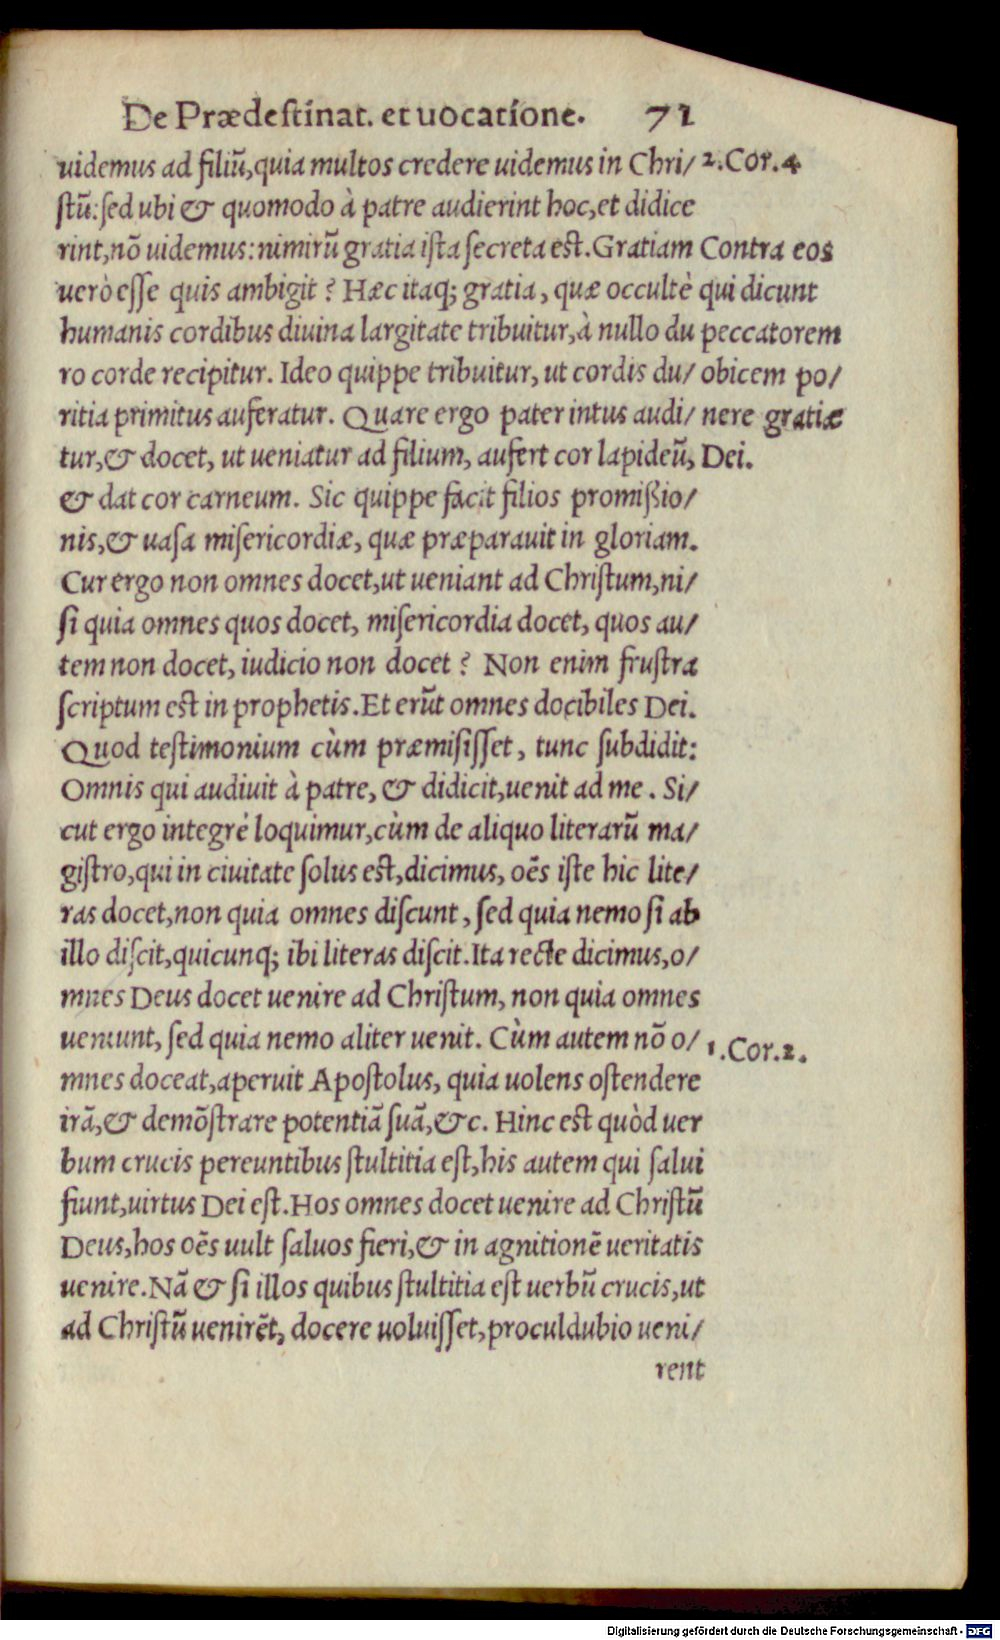 De Prædestinat. et uocatione. 71
uidemus ad filiũ,quia multos credere uidemus in Chri/
stũ:sed ubi & quomodo à patre audierint hoc,et didice
rint,nõ uidemus:nimirũ gratia ista secreta est.Gratiam
uerò esse quis ambigit? Hæc itaq; gratia, quæ occultè
humanis cordibus diuina largitate tribuitur,à nullo du
ro corde recipitur. Ideo quippe tribuitur, ut cordis du/
ritia primitus auferatur. Quare ergo pater intus audi/
tur,& docet, ut ueniatur ad filium, aufert cor lapideũ,
& dat cor carneum. Sic quippe facit filios promißio/
nis,& uasa misericordiæ, quæ præparauit in gloriam.
Cur ergo non omnes docet,ut ueniant ad Christum,ni/
si quia omnes quos docet, misericordia docet, quos au/
tem non docet, iudicio non docet? Non enim frustra
scriptum est in prophetis.Et erũt omnes docibiles Dei.
Quod testimonium cùm præmisisset, tunc subdidit:
Omnis qui audiuit à patre, & didicit,uenit ad me. Si/
cut ergo integrè loquimur,cùm de aliquo literarũ ma/
gistro,qui in ciuitate solus est,dicimus, oẽs iste hic lite/
ras docet,non quia omnes discunt, sed quia nemo si ab
illo discit,quicunq; ibi literas discit.Ita recte dicimus,o/
mnes Deus docet uenire ad Christum, non quia omnes
ueniunt, sed quia nemo aliter uenit. Cùm autem nõ o/
mnes doceat,aperuit Apostolus, quia uolens ostendere
irã,& demõstrare potentiã suã,&c. Hinc est quòd uer
bum crucis pereuntibus stultitia est,his autem qui salui
fiunt,uirtus Dei est.Hos omnes docet uenire ad Christũ
Deus,hos oẽs uult saluos fieri,& in agnitionẽ ueritatis
uenire.Nã & si illos quibus stultitia est uerbũ crucis,ut
ad Christũ uenirẽt, docere uoluisset,proculdubio ueni/
rent
2.Cor.4
Contra eos
qui dicunt
peccatorem
obicem po/
nere gratiæ
Dei.
1.Cor.2.
Digitalisierung gefördert durch die Deutsche Forschungsgemeinschaft - DFG